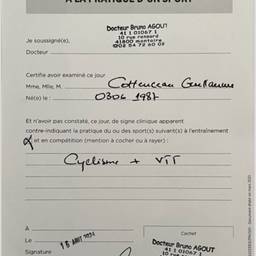 A LA PRATIQUE D'UN SPORT
Docteur Bruno AGOUT
41 1 01067 1
10 rue ronsard
41800 montoire
02 54 72 60 02
Je soussigné(e),
Docteur
Certifie avoir examiné ce jour
Mme, Mlle, M. Guillaume
Né(e) le : 0306 1987
Et n'avoir pas constaté, ce jour, de signe clinique apparent
contre-indiquant la pratique du ou des sport(s) suivant(s) à l'entraînement
et en compétition (mention à cocher ou à rayer) :
Cyclisme + VTT
A
Cachet
Le 18 AOUT 2021
Docteur Bruno AGOUT
41 1 01067 1
Signature